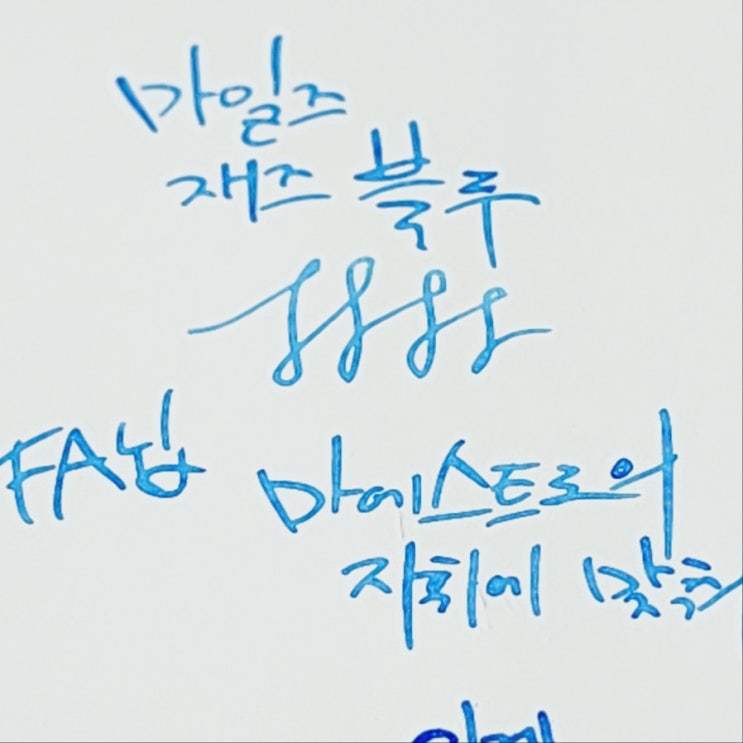 마일즈
재즈 블루
FA닙
마에스트로의
지휘에 맞춰